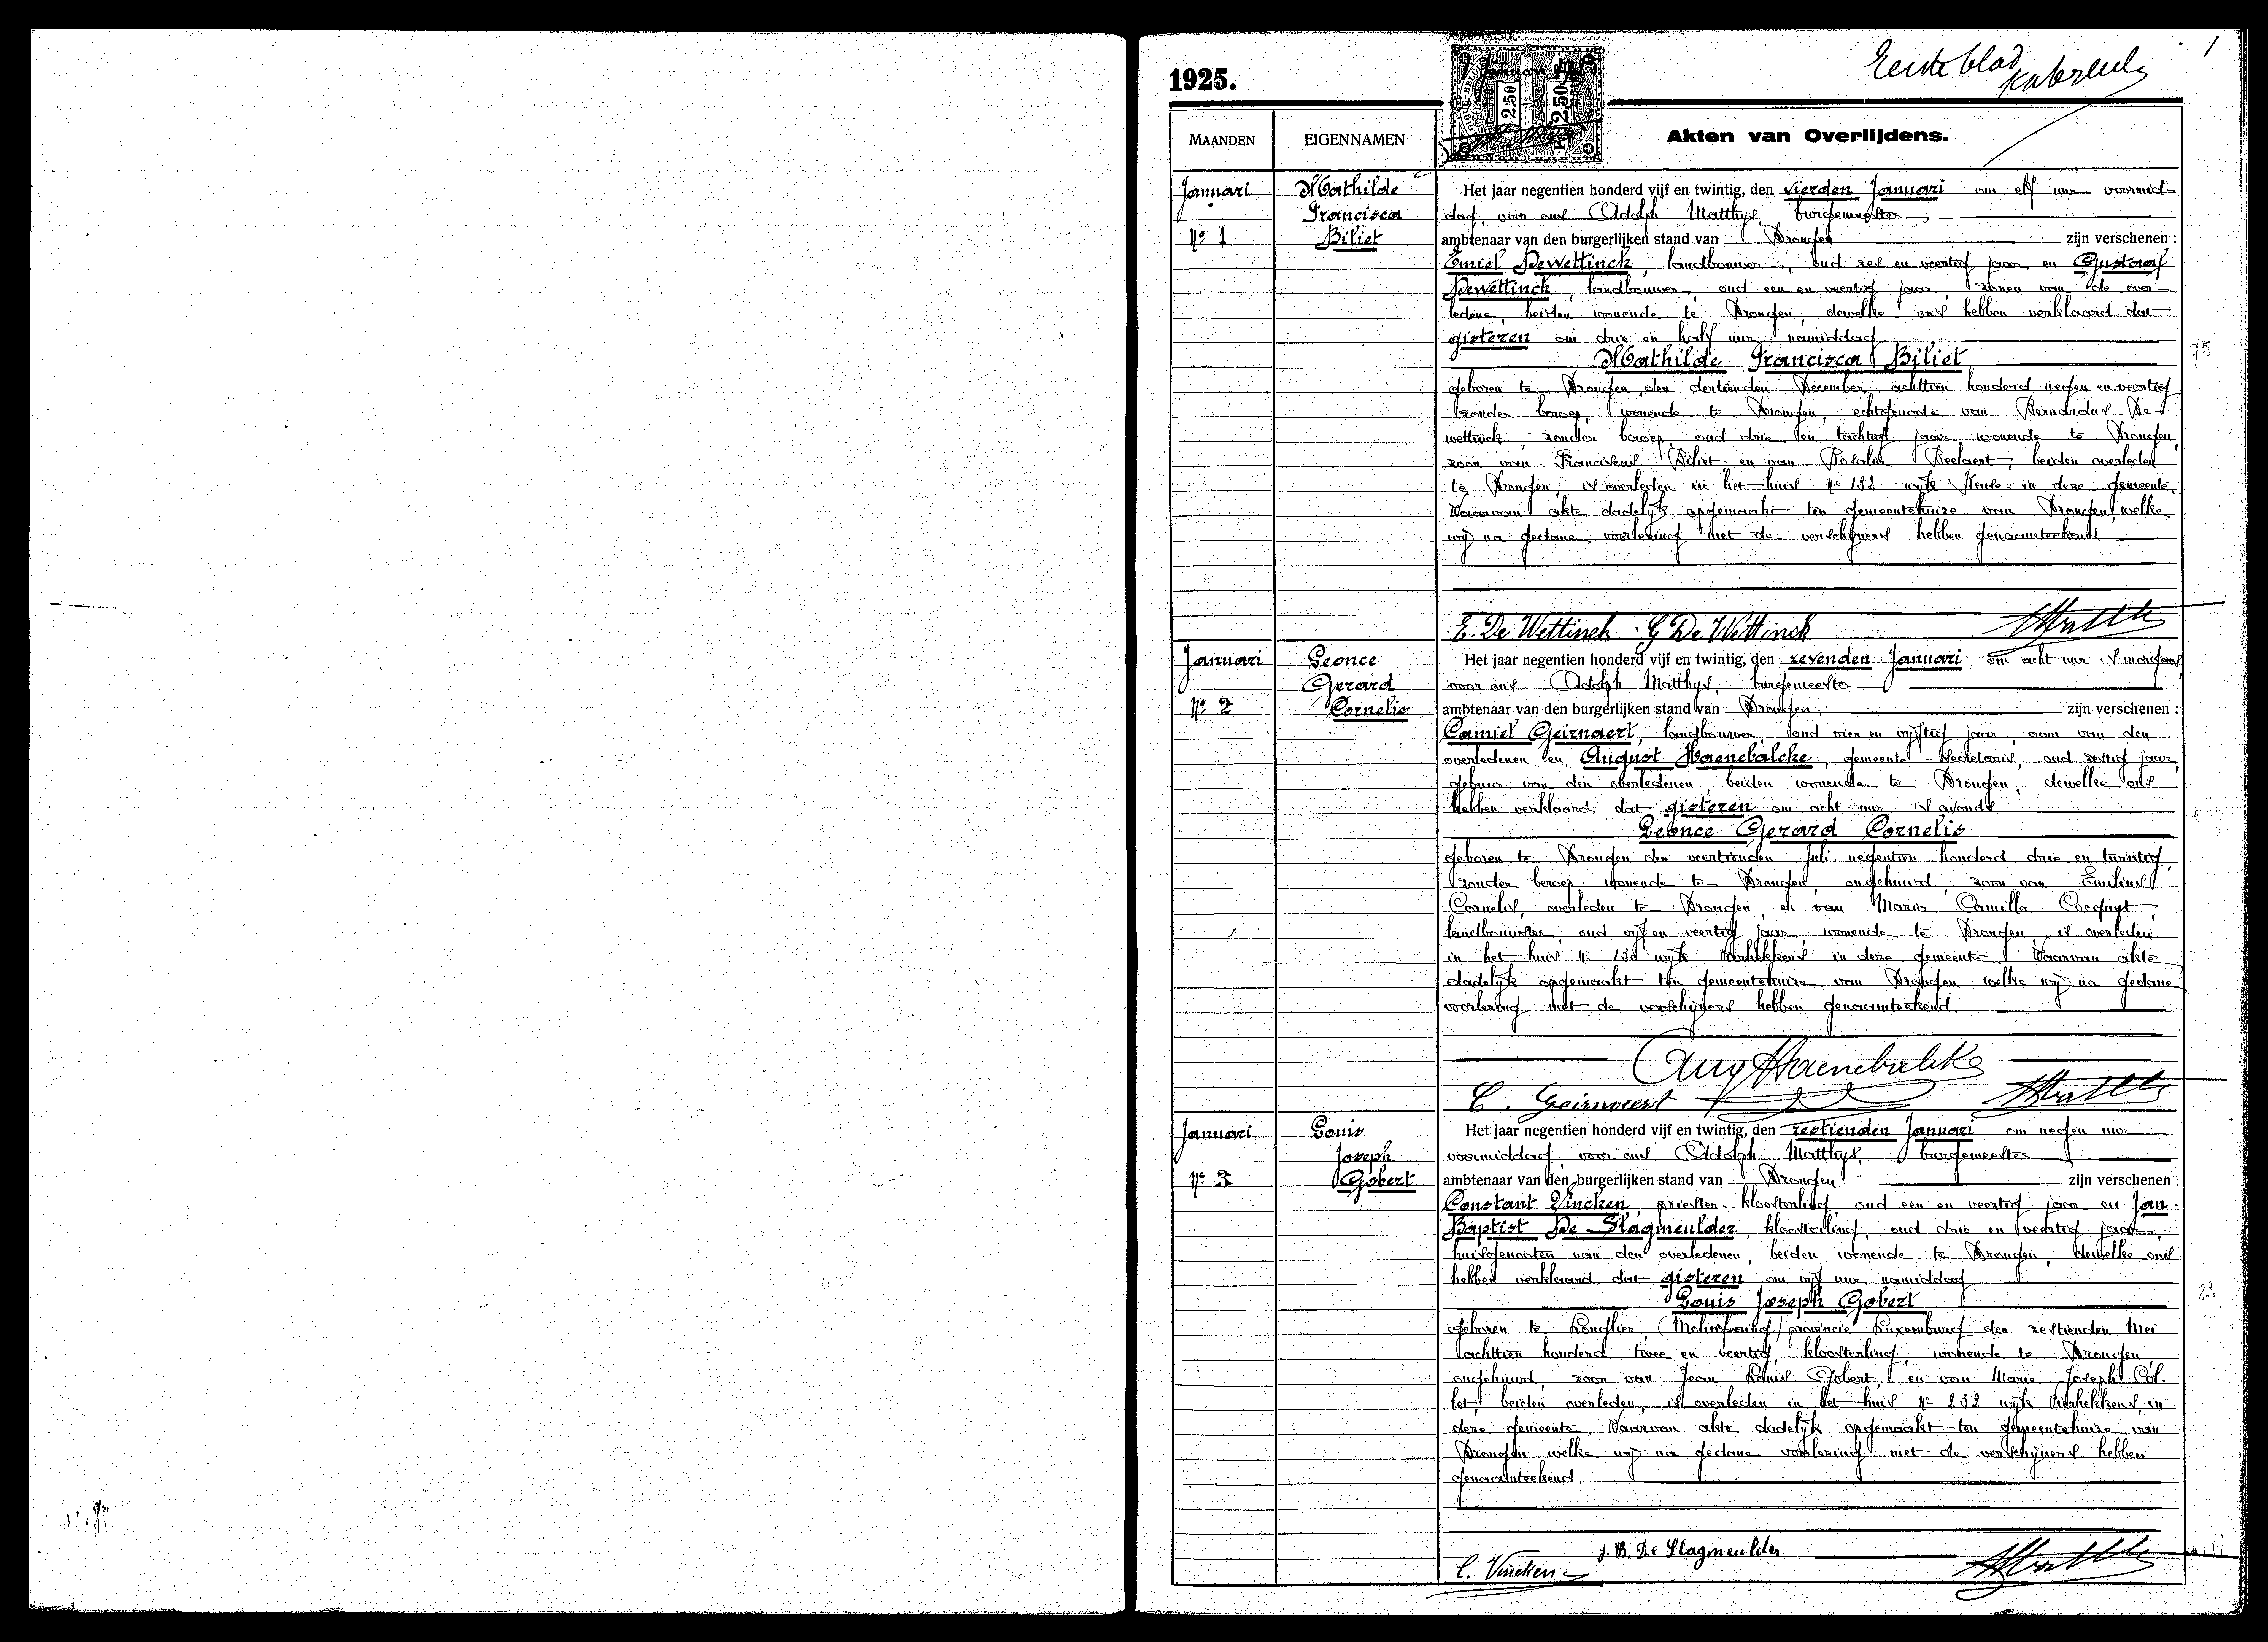 1
Eerste blad
1925.
Januari
2.50 2.50
MAANDEN EIGENNAMEN Akten van Overlijdens.
Januari
Nº 1
Mathilde
Francisca
Biliet
Het jaar negentien honderd vijf en twintig, den vierden Januari om elf uur voormid-
dag, voor ons Adolph Matthys, burgemeester
ambtenaar van den burgerlijken stand van Drongen zijn verschenen :
Emiel Dewettinck, landbouwer, oud zes en veertig jaar, en Gustaaf
Dewettinck, landbouwer, oud een en veertig jaar, zonen van de over-
ledene, beiden wonende te Drongen, dewelke ons hebben verklaard dat
gisteren om drie en half uur namiddag
Mathilde Francisca Biliet
75
geboren te Drongen, den dertienden December achttien honderd negen en veertig
zonder beroep, wonende te Drongen, echtgenoote van Bernardus De-
wettinck, zonder beroep, oud drie en tachtig jaar, wonende te Drongen,
zoon van Franciskus Biliet en van Rosalie Beelaert, beiden overleden
te Drongen, is overleden in het huis Nº 132 wijk in deze gemeente.
Waarvan akte dadelijk opgemaakt ten gemeentehuize van Drongen, welke
wij na gedane voorlezing met de verschijners hebben genaamteekend
E. De Wettinck G De Wettinck
Januari
Nº 2
Leonce
Gerard
Cornelis
Het jaar negentien honderd vijf en twintig, den zevenden Januari om acht uur 's morgens,
voor ons Adolph Matthys, burgemeester
ambtenaar van den burgerlijken stand van Drongen, zijn verschenen :
Camiel Geirnaert, landbouwer, oud vier en vijftig jaar, oom van den
overledenen en August Haenebalcke, gemeente-secretaris, oud zestig jaar,
gebuur van den overledenen, beiden wonende te Drongen, dewelke ons
hebben verklaard dat gisteren om acht uur 's avonds
Leonce Gerard Cornelis
geboren te Drongen den veertienden Juli negentien honderd drie en twintig,
zonder beroep, wonende te Drongen, ongehuwd, zoon van Emilius
Cornelis, overleden te Drongen, en van Maria Camilla Cocquyt,
landbouwster, oud vijf en veertig jaar, wonende te Drongen, is overleden
in het huis Nº wijk Vierhekkens in deze gemeente. Waarvan akte
dadelijk opgemaakt ten gemeentehuize van Drongen welke wij na gedane
voorlezing met de verschijners hebben genaamteekend.
Aug Haenebalcke
C. Geirnaert
Januari
Nº 3
Louis
Joseph
Gobert
Het jaar negentien honderd vijf en twintig, den zestienden Januari om negen uur
voormiddag, voor ons Adolph Matthys, burgemeester
ambtenaar van den burgerlijken stand van Drongen zijn verschenen :
Constant Vincken, priester-kloosterling, oud een en veertig jaar en Jan-
Baptist De Slagmeulder, kloosterling, oud drie en veertig jaar,
huisgenooten van den overledenen, beiden wonende te Drongen, dewelke ons
hebben verklaard dat gisteren om vijf uur namiddag
Louis Joseph Gobert
82
geboren te Longlier, (Molinfaing) provincie Luxemburg den zestienden Mei
achttien honderd twee en veertig, kloosterling, wonende te Drongen,
ongehuwd, zoon van Jean Louis Gobert, en van Marie Joseph Col-
let, beiden overleden, is overleden in het huis Nº 232 wijk Vierhekkens, in
deze gemeente. Waarvan akte dadelijk opgemaakt ten gemeentehuize van
Drongen welke wij na gedane voorlezing met de verschijners hebben
genaamteekend
J. B. De Slagmeulder
C. Vincken